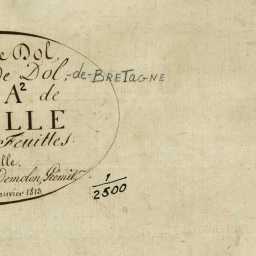 e Dol,
de Dol,-de-BRETAGNE
A² de
LLE
Feuilles.
lle.
Demolon, Géomètr
anvier 1813
1
2500